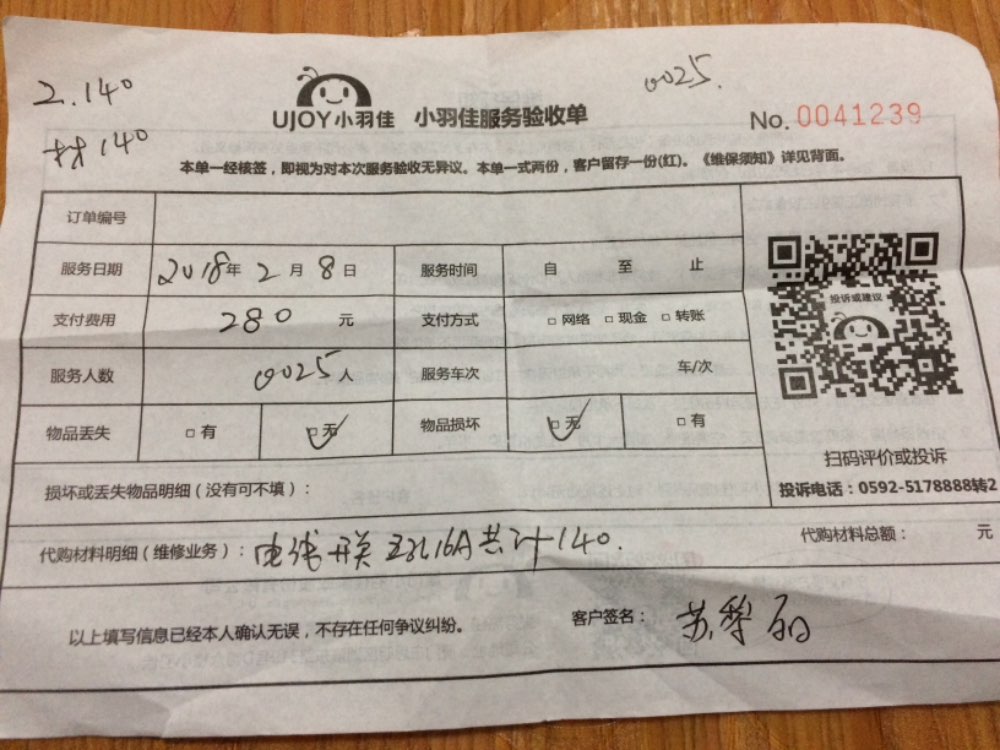 2.140
0025.
材140
UJOY小羽佳 小羽佳服务验收单
No. 0041239
本单一经核签，即视为对本次服务验收无异议。本单一式两份，客户留存一份(红)。《维保须知》详见背面。
订单编号
服务日期 2018年 2月 8日 服务时间 自 至 止
支付费用 280 元 支付方式 □网络 □现金 □转账
投诉或建议
服务人数 0025人 服务车次 车/次
物品丢失 □有 □无 物品损坏 □无 □有
扫码评价或投诉
损坏或丢失物品明细（没有可不填）：
投诉电话：0592-5178888转2
代购材料明细（维修业务）： 电线开关 16A共计140.
代购材料总额： 元
以上填写信息已经本人确认无误，不存在任何争议纠纷。
客户签名： 苏梨